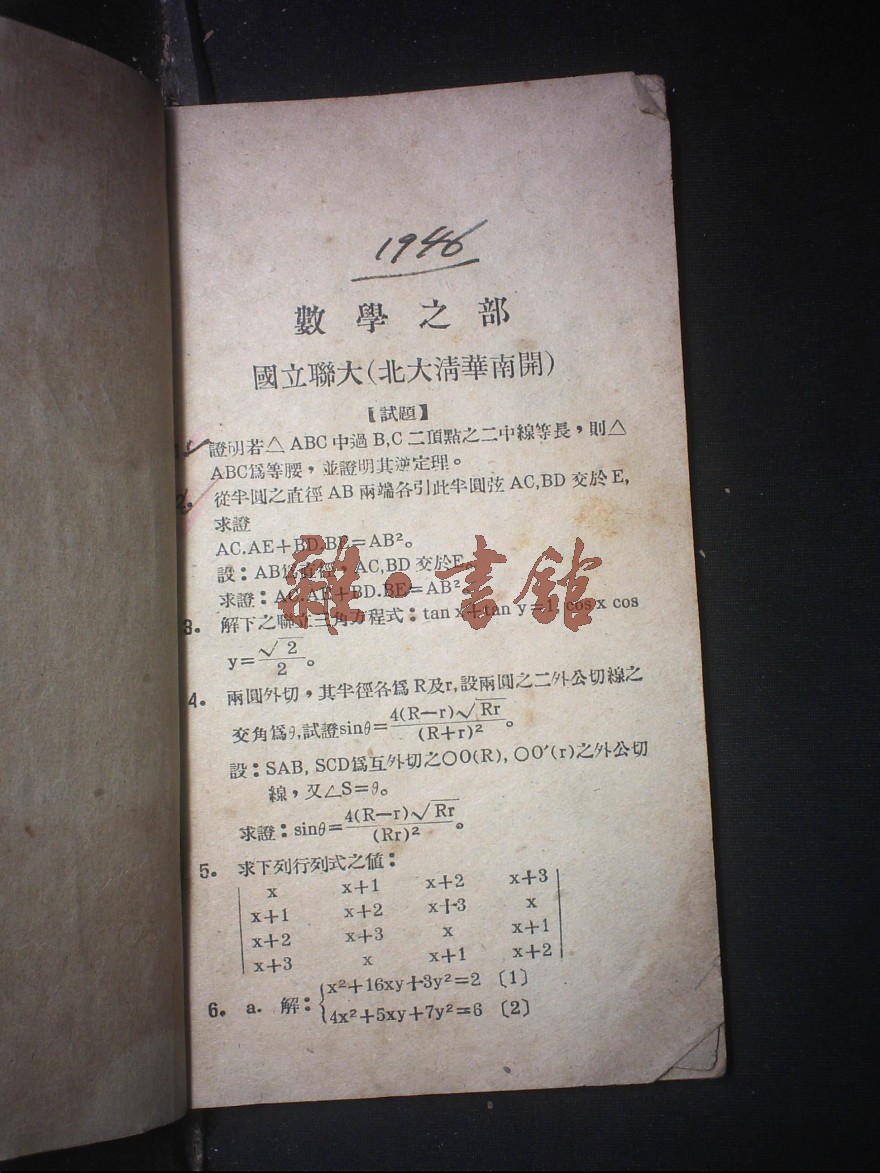 1946
數學之部
國立聯大(北大清華南開)
【試題】
證明若△ABC中過B,C二頂點之二中線等長,則△
ABC爲等腰,並證明其逆定理。
2. 從半圓之直徑AB兩端各引此半圓弦AC,BD交於E,
求證
AC.AE+BD.BE=AB²。
設:AB爲直徑,AC,BD交於E。
求證:AC.AE+BD.BE=AB²
3. 解下之聯立三角方程式:tan x+tan y=1, cos x cos
y=√2/2。
4. 兩圓外切,其半徑各爲R及r,設兩圓之二外公切線之
交角爲θ,試證sinθ=4(R—r)√Rr/(R+r)²。
設:SAB, SCD爲互外切之○O(R), ○O′(r)之外公切
線,又∠S=θ。
求證:sinθ=4(R—r)√Rr/(Rr)²。
5. 求下列行列式之值:
x x+1 x+2 x+3
x+1 x+2 x+3 x
x+2 x+3 x x+1
x+3 x x+1 x+2
6. a. 解:{x²+16xy+3y²=2 〔1〕
4x²+5xy+7y²=6 〔2〕
雜·書館